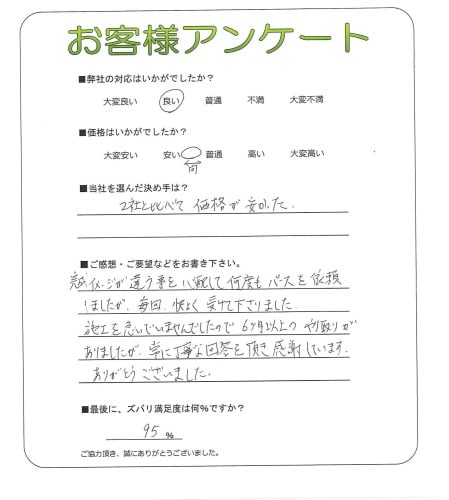 お客様アンケート
■弊社の対応はいかがでしたか？
大変良い 良い 普通 不満 大変不満
■価格はいかがでしたか？
大変安い 安い 普通 高い 大変高い
間
■当社を選んだ決め手は？
2社と比べて 価格が安かった.
■ご感想・ご要望などをお書き下さい。
イメージが違う事を心配して何度もパースを依頼
しましたが、毎回、快よく受けて下さりました.
施工を急いでいませんでしたので 6ヶ月以上の やり取りが
ありましたが、常に丁寧な回答を頂き感謝しています.
ありがとうございました.
■最後に、ズバリ満足度は何％ですか？
95 %
ご協力頂き、誠にありがとうございました。